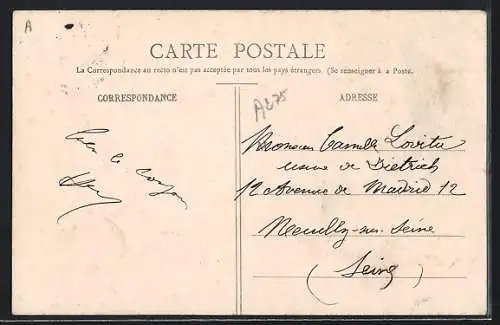 A
CARTE POSTALE
La Correspondance au recto n'est pas acceptée par tous les pays étrangers. (Se renseigner à la Poste.
CORRESPONDANCE
ADRESSE
A275
Monsieur Camille
usine de Dietrich
12 Avenue de Madrid 12
Neuilly-sur-Seine
(Seine)